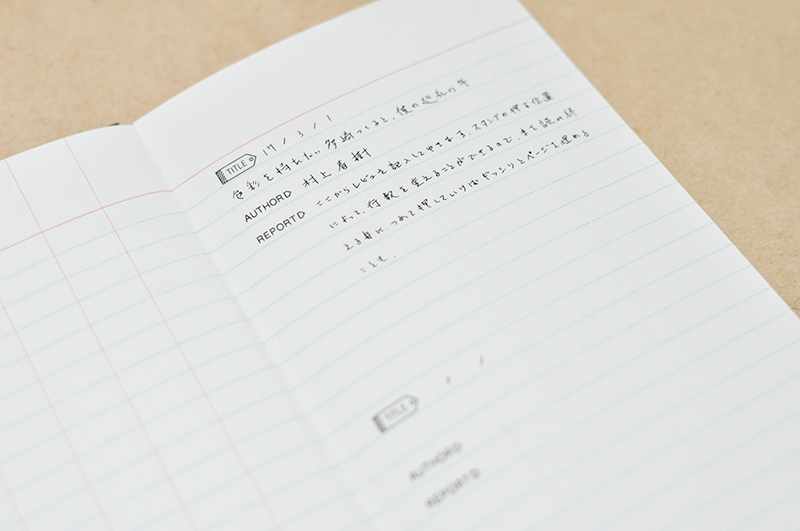 17 / 3 / 1
TITLE
色彩を持たない多崎つくると、彼の巡礼の年
AUTHOR D 村上春樹
REPORT D ここからレビューを記入して
スタンプの押す位置
によって、行数を変えることができるので、
える毎に つめて押していけばギッシリとページを埋める
ことも。
/ /
TITLE
AUTHOR D
REPORT D